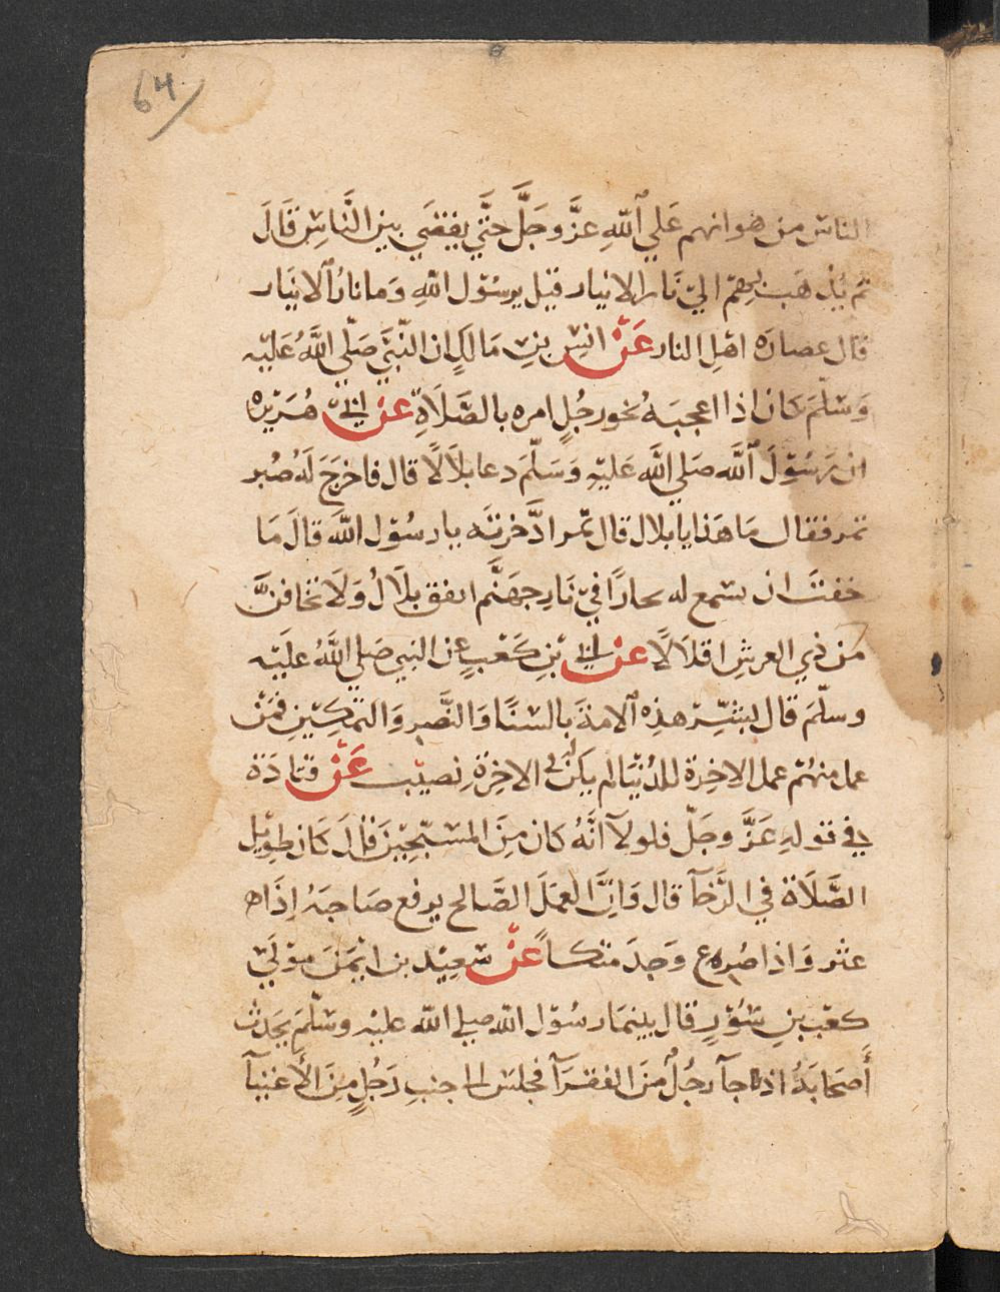 64
الناس من هوانهم علي ٱلله عزّ وجَلَّ حتَّي يقضَي بين النَّاسِ قَالَ
ثم يُذهَب بِهِمْ اليّ نَار الانيار قيْل يرسُوْل اللهِ وَما نارُ ٱلانيَار
قال عصارَه اهْلِ النار عَنْ انسْ بنِ مَالكٍ ان النّبيَّ صَلّي اللَّهُ عَليْه
وَسَلّمَ كان اذا اعجبَهُ نحو رجُلٍ امره بالصَّلَاةِ عن ابيّ هُرَيْره
ان رَسُوْلَ ٱللَّه صَلي اللَّه عَليْهِ وَسَلّمَ دعا بلَالًا قال فاخرَجَ لَهُ صُبر
تمر فقال مَا هَذا يا بلال قال تمر ادَّخرتَه يا رسُوْل اللَّه قالَ مَا
خفتَ ان يسْمع له بحارًا فيْ نَار جهَنَّم انفق بلَالُ وَلَا تخافنَّ
من ذي العرشِ اقلَالًا عن ابي بْنِ كَعْبٍ عن النبي صَلي اللَّهُ عليْه
وسلّمَ قال بشِّرْ هذِه ٱلامةَ بالسَنَا وَالنَّصْرِ وَالتمكيْنِ فمَنْ
عمل منهُمْ عمل الاخِرة للدُنيَا لم يكن له في الاخِرةِ نصيْب عَنْ قتادَة
في قولهِ عَزَّ وجَلّ فلولآ انَّهُ كان مِنَ المسَبّحِيْنَ قال كَان طوِيْل
الصَّلَاة في الرَّخآ قال وَانَّ العمَلَ الصَّالح يرفع صَاحبَهُ اذَا ه
عثر وَاذا صُرع وَجدَ متكاً عَنْ سَعِيْد بن ايْمَنَ موْليَ
كعْب بنِ سُوْرٍ قال بينمَا رسُوْل اللّه صلي اللّه عليْهِ وسَلّمَ يحَدثُ
أَصحَابَهُ اذ جآ رجُلٌ منَ الفقرَآ فجلسَ الا جنبِ رَجُلٍ مِنَ الأغنيآ